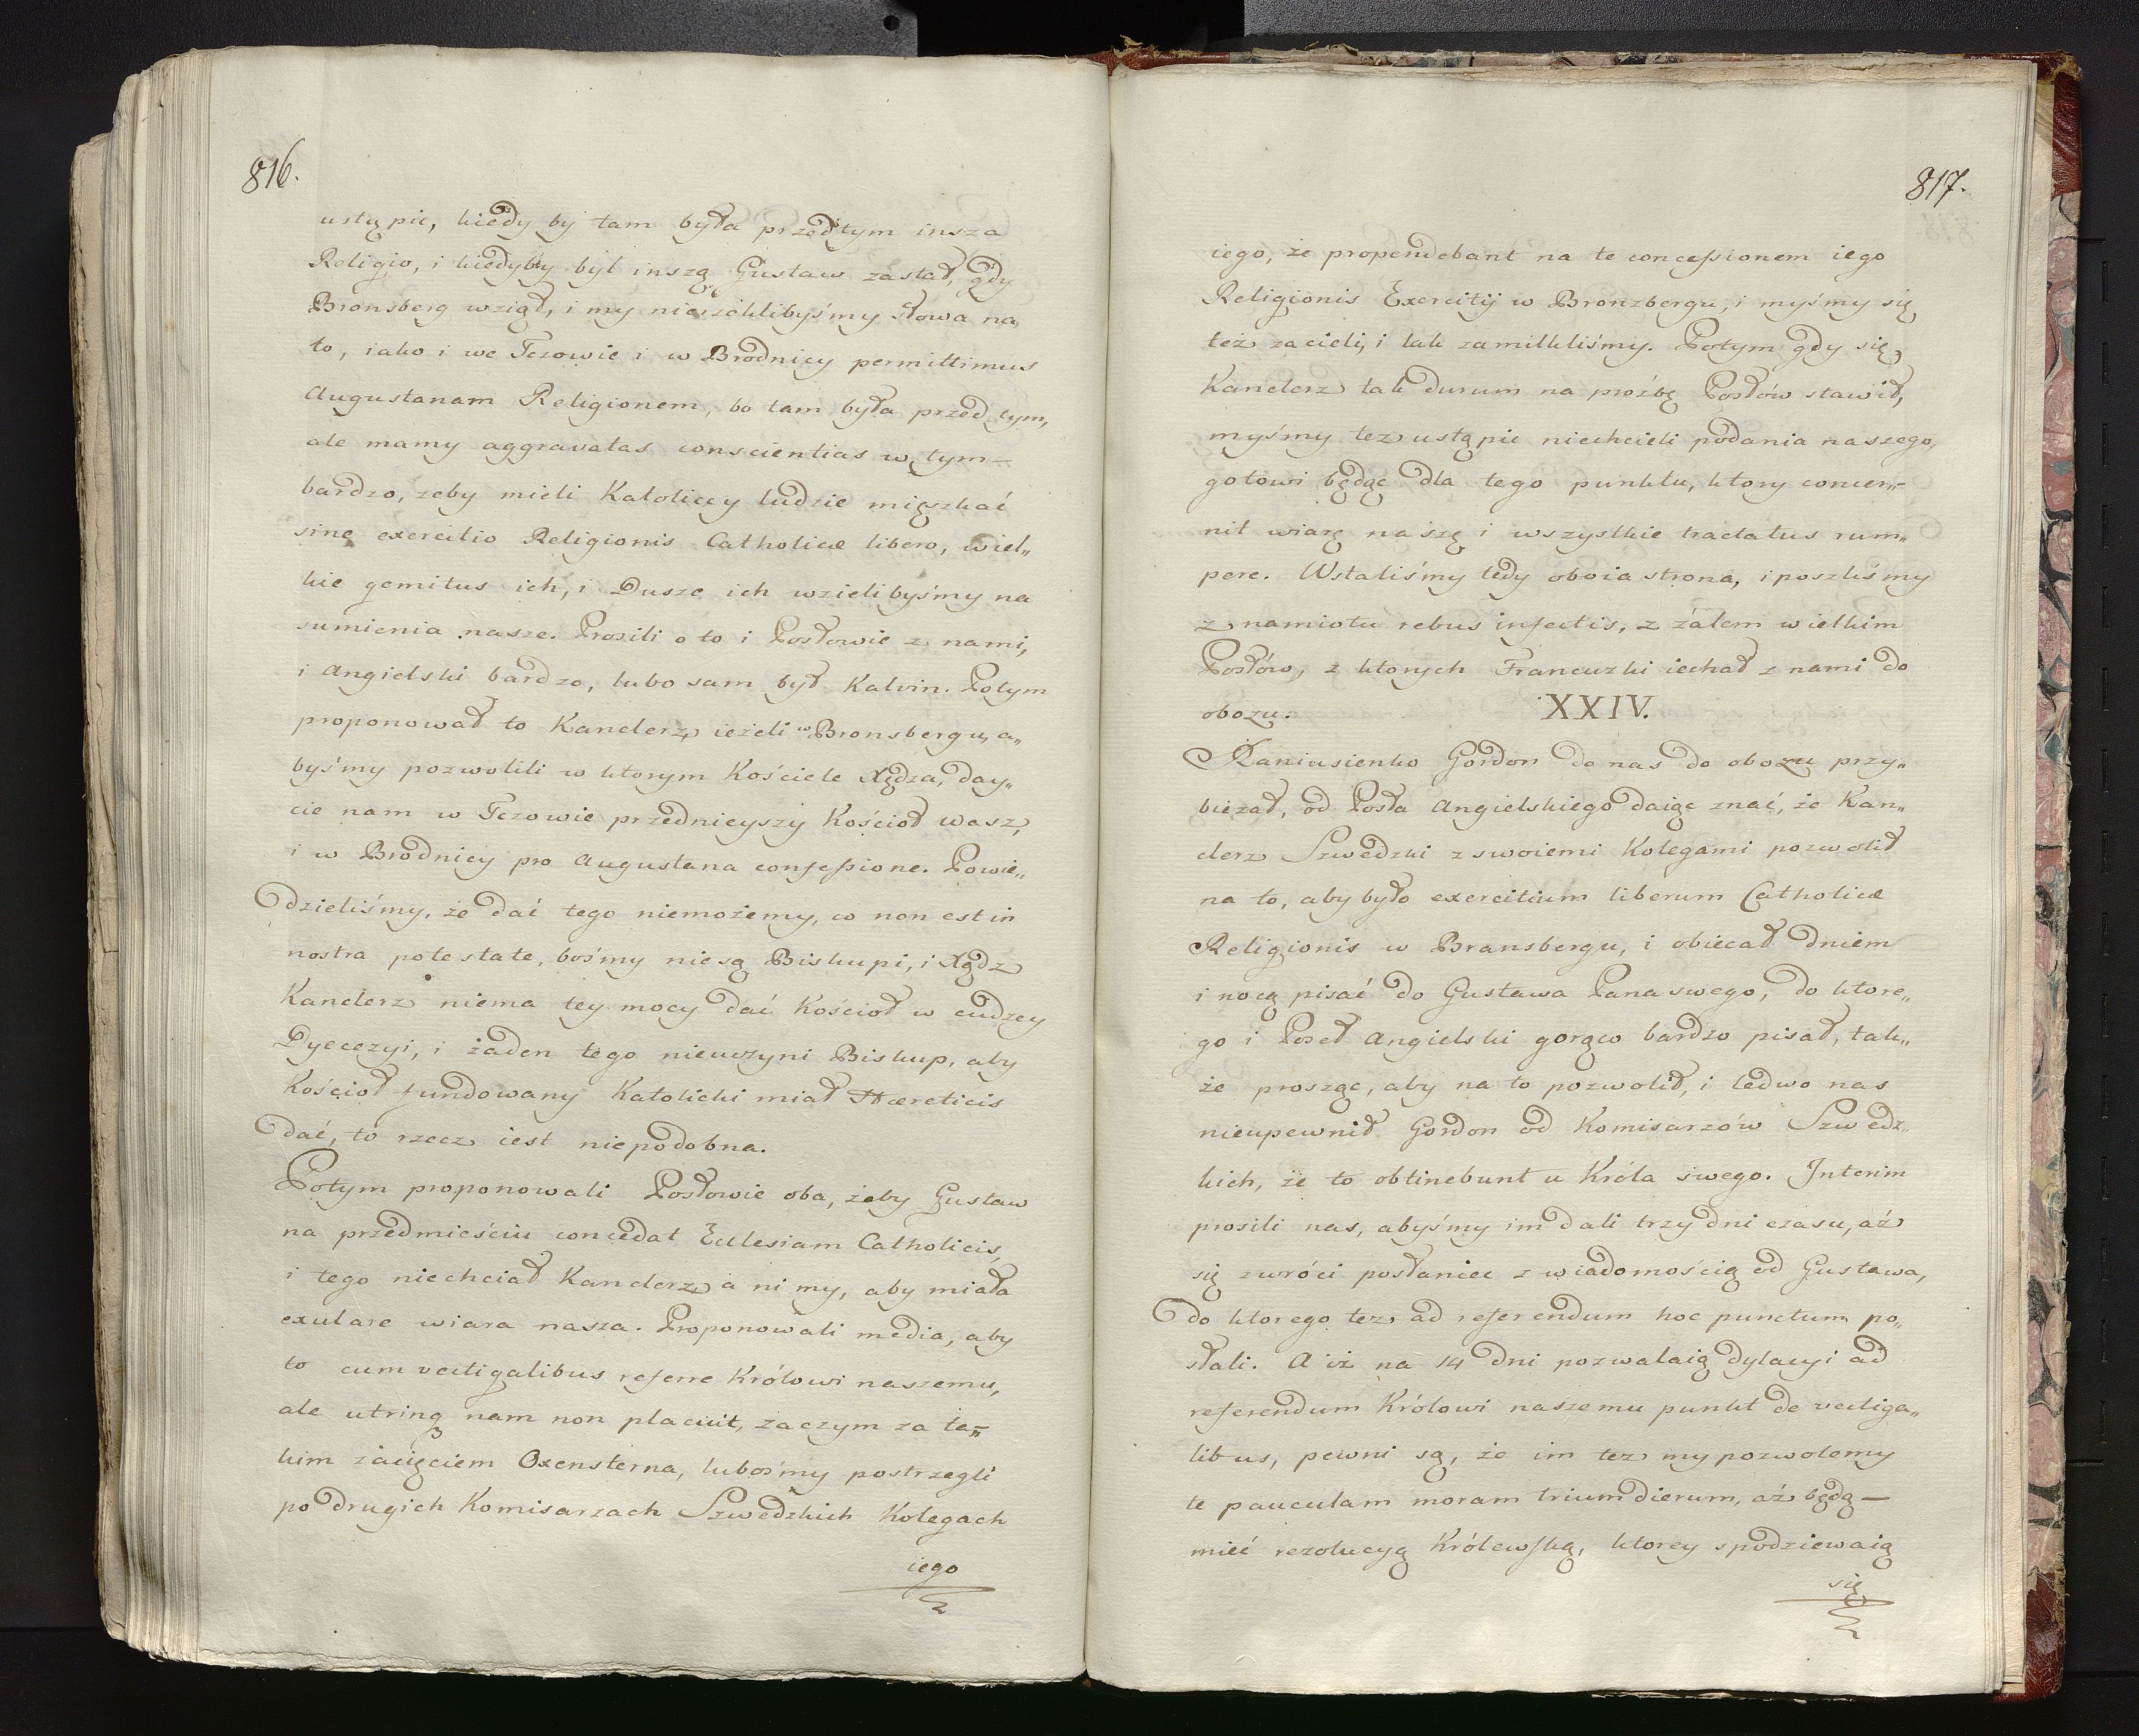 816.
ustąpić, kiedy by tam była przedtym insza
Religio, i kiedyby był inszą Gustaw zastał, gdy
Bronsberg wziął, i my nierzeklibyśmy słowa na
to, iako i we Tczowie i w Brodnicy permittimus
Augustanam Religionem, bo tam była przed tym,
ale mamy aggravatas conscientias w tym—
bardzo, żeby mieli Katoliccy ludzie mięszkać
sine exercitio Religionis Catholicæ libero, wiel„
kie gemitus ich, i Dusze ich wzielibyśmy na
sumienia nasze. Prosili o to i Posłowie z nami,
i Angielski bardzo, lubo sam był Kalvin. Potym
proponował to Kanclerz, ieżeli w Bronsbergu, a„
byśmy pozwolili w ktorym Kościele Xędza, day„
cie nam w Tczowie przednieyszy Kościoł wasz,
i w Brodnicy pro Augustana confessione. Powie„
dzieliśmy, że dać tego niemożemy, co non est in
nostra potestate, bośmy nie są Biskupi, i Xądz
Kanclerz niema tey mocy dać Kościoł w cudzey
Dyecezyi, i żaden tego nieuczyni Biskup, aby
Kościoł fundowany Katolicki miał Hæreticis
dać, to rzecz iest niepodobna.
Potym proponowali Posłowie oba, żeby Gustaw
na przedmieściu concedat Ecclesiam Catholicis,
i tego niechciał Kanclerz, a ni my, aby miała
exulare wiara nasza. Proponowali media, aby
to cum vectigalibus referre Królowi naszemu,
ale utrinq nam non placuit, zaczym za ta„
kim zacięciem Oxensterna, lubośmy postrzegli
po drugich Komisarzach Szwedzkich Kolegach
iego
817.
iego, że propendebant na te concessionem iego
Religionis Exercitij w Bronzbergu, i myśmy się
też zacieli, i tak zamilkliśmy. Potym gdy się
Kanclerz tak durum na proźbę Posłów stawił,
myśmy tez ustąpić niechcieli podania naszego,
gotowi będąc dla tego punktu, ktory concer„
nit wiarę naszę i wszystkie tractatus rum„
pere. Wstaliśmy tedy oboia strona, i poszliśmy
z namiotu rebus infectis, z żalem wielkim
Posłów, z ktorych Francuzki iechał z nami do
obozu.
XXIV.
Raniusienko Gordon do nas do obozu przy„
bieżał, od Posła Angielskiego daiąc znać, że Kan„
clerz Szwedzki z swoiemi Kolegami pozwolił
na to, aby było exercitium liberum Catholicæ
Religionis w Bransbergu, i obiecał dniem
i nocą pisać do Gustawa Pana swego, do ktore„
go i Poseł Angielski gorąco bardzo pisał, tak„
że prosząc, aby na to pozwolił, i ledwo nas
nieupewnił Gordon od Komisarzów Szwedz„
kich, że to obtinebunt u Króla swego. Interim
prosili nas, abyśmy im dali trzy dni czasu, aż
się zwróci posłaniec z wiadomością od Gustawa,
do ktorego tez ad referendum hoc punctum po„
słali. A iż na 14 dni pozwalaią dylacyi ad
referendum Królowi naszemu punkt de vectiga„
libus, pewni są, że im tez my pozwolemy
te pauculam moram trium dierum, aż będą—
mieć rezolucyą Królewską, ktorey spodziewaią
się